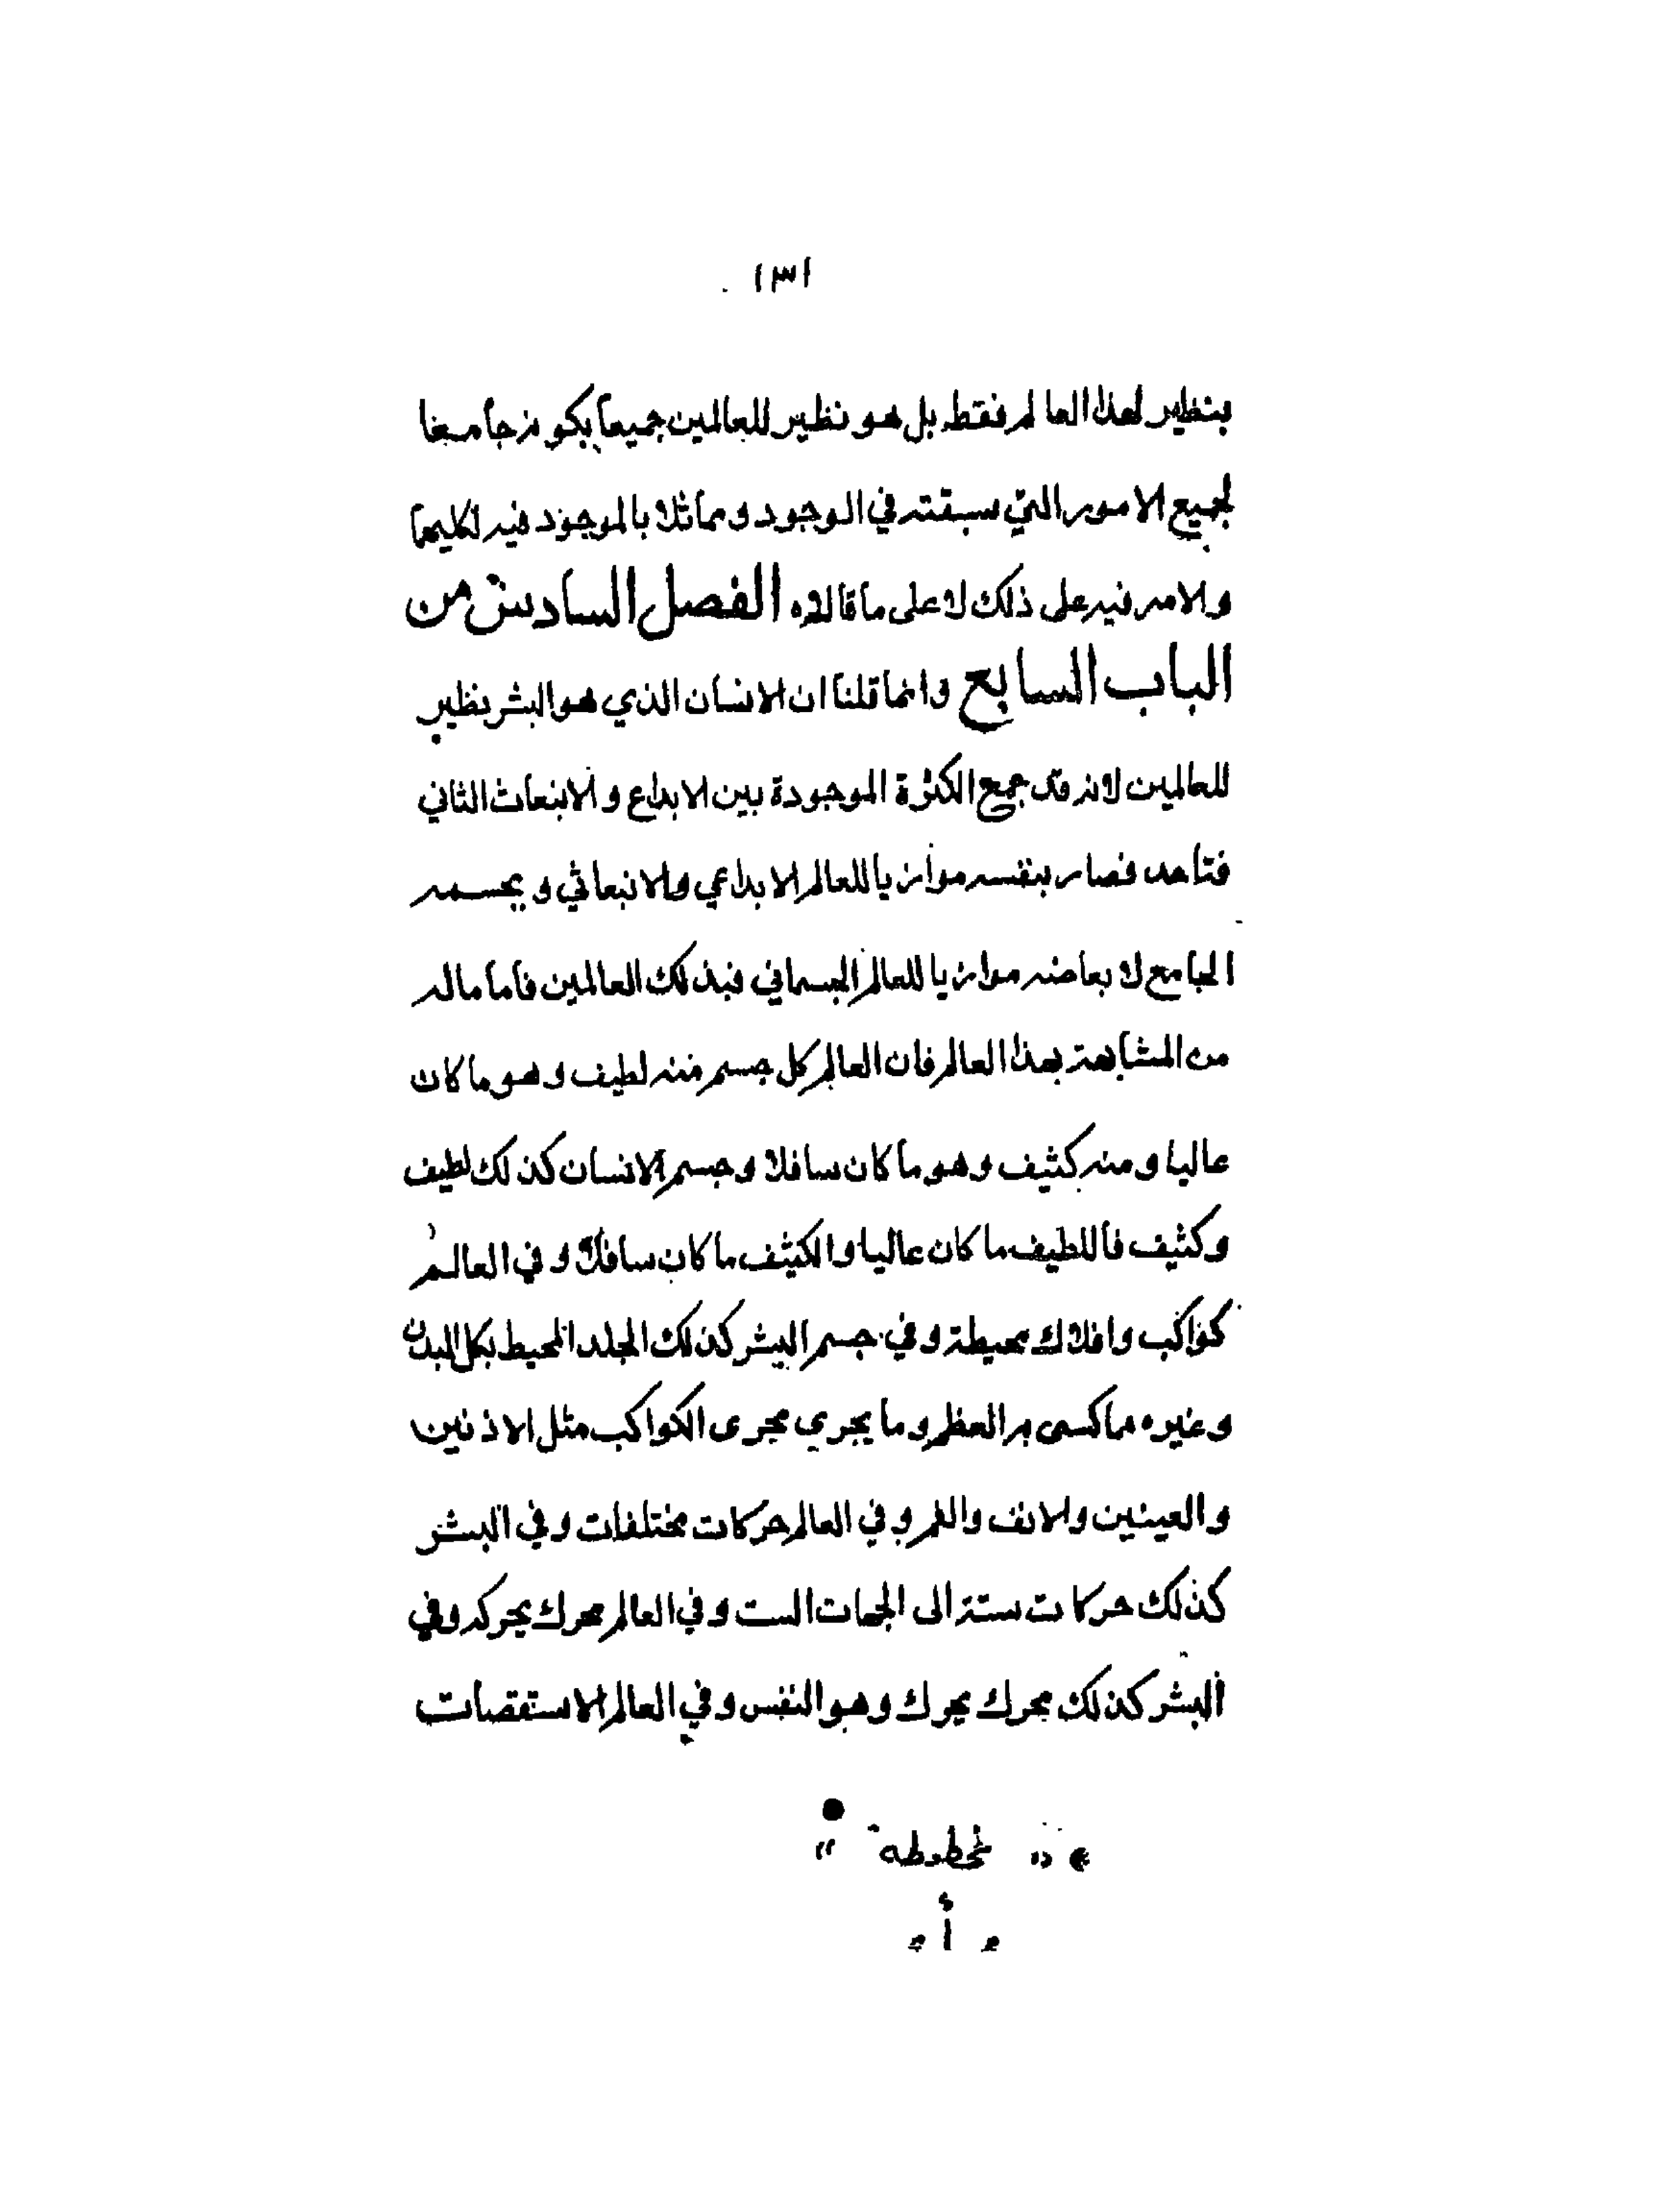 ١٣١
بنظير لهذا العالم فقط بل هو نظير للعالمين جميعا بكونه جامعا
لجميع الامور التي سبقته في الوجود ومماثلا بالموجود فيه لكليهما
والامر فيه على ذلك لا على ما قالاه الفصل السادس من
الباب السابع وانما قلنا ان الانسان الذي هو البشر نظير
للعالمين لانه قد جمع الكثرة الموجودة بين الابداع والانبعاث الثاني
فتاحد فصار بنفسه موازيا للعالم الابداعي والانبعاثي وبجسمه
الجامع لابعاضه موازيا للعالم الجسماني فبذلك العالمين فاما ماله
من المشابهة بهذا العالم فان العالم كل جسم منه لطيف وهو ما كان
عاليا ومنه كثيف وهو ما كان سافلا وجسم الانسان كذلك لطيف
وكثيف فاللطيف ما كان عاليا والكثيف ما كان سافلا وفي العالم
كواكب وافلاك محيطة وفي جسم البشر كذلك الجلد المحيط بكل البدن
وغيره مما كسى به العظم وما يجري مجرى الكواكب مثل الاذنين
والعينين والانف والفم وفي العالم حركات مختلفات وفي البشر
كذلك حركات ستة الى الجهات الست وفي العالم محرك يحركه وفي
البشر كذلك محرك يحرك وهو النفس وفي العالم الاستقصات
مخطوطة
أ